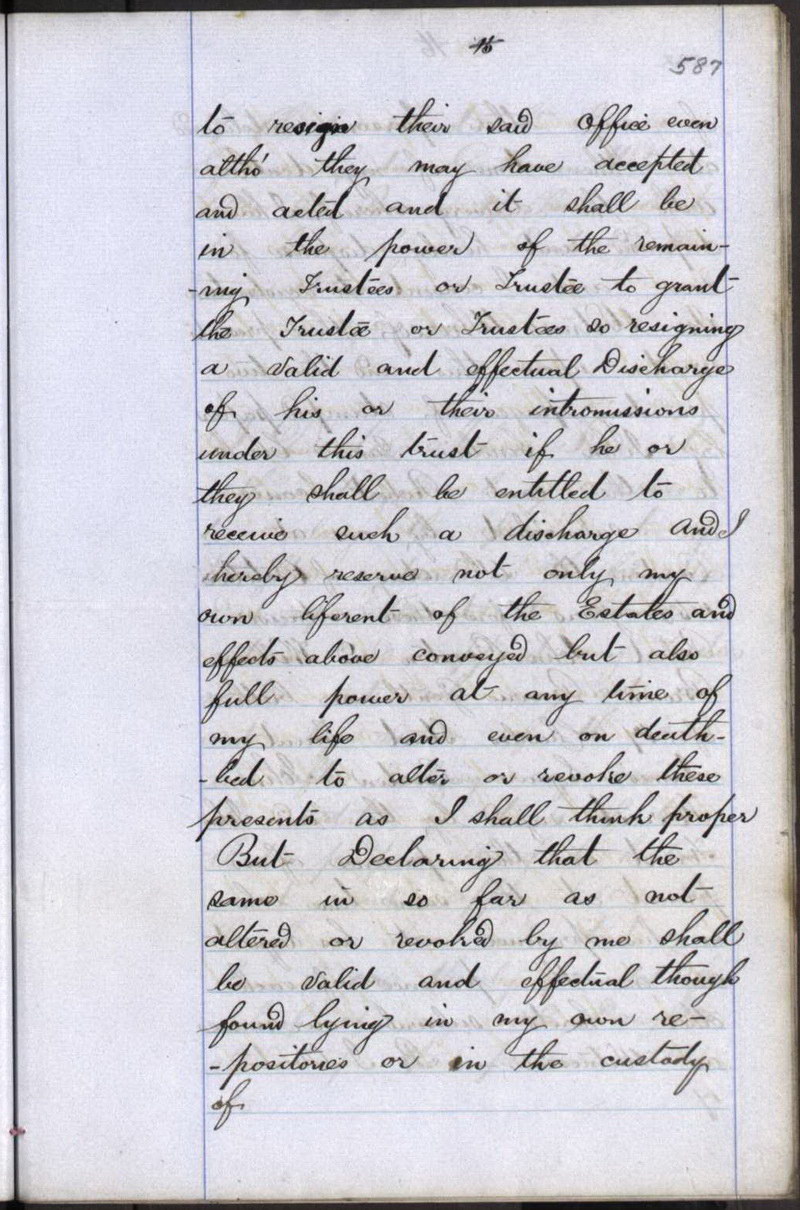 15
587
to resign their said office even
altho' they may have accepted
and acted and it shall be
in the power of the remain-
-ing Trustees or Trustee to grant
the Trustee or Trustees so resigning
a valid and effectual Discharge
of his or their intromissions
under this trust if he or
they shall be entitled to
receive such a discharge and I
hereby reserve not only my
own liferent of the Estates and
effects above conveyed but also
full power at any time of
my life and even on death-
-bed to alter or revoke these
presents as I shall think proper
But Declaring that the
same in so far as not
altered or revoked by me shall
be valid and effectual though
found lying in my own re-
-positories or in the custody
of